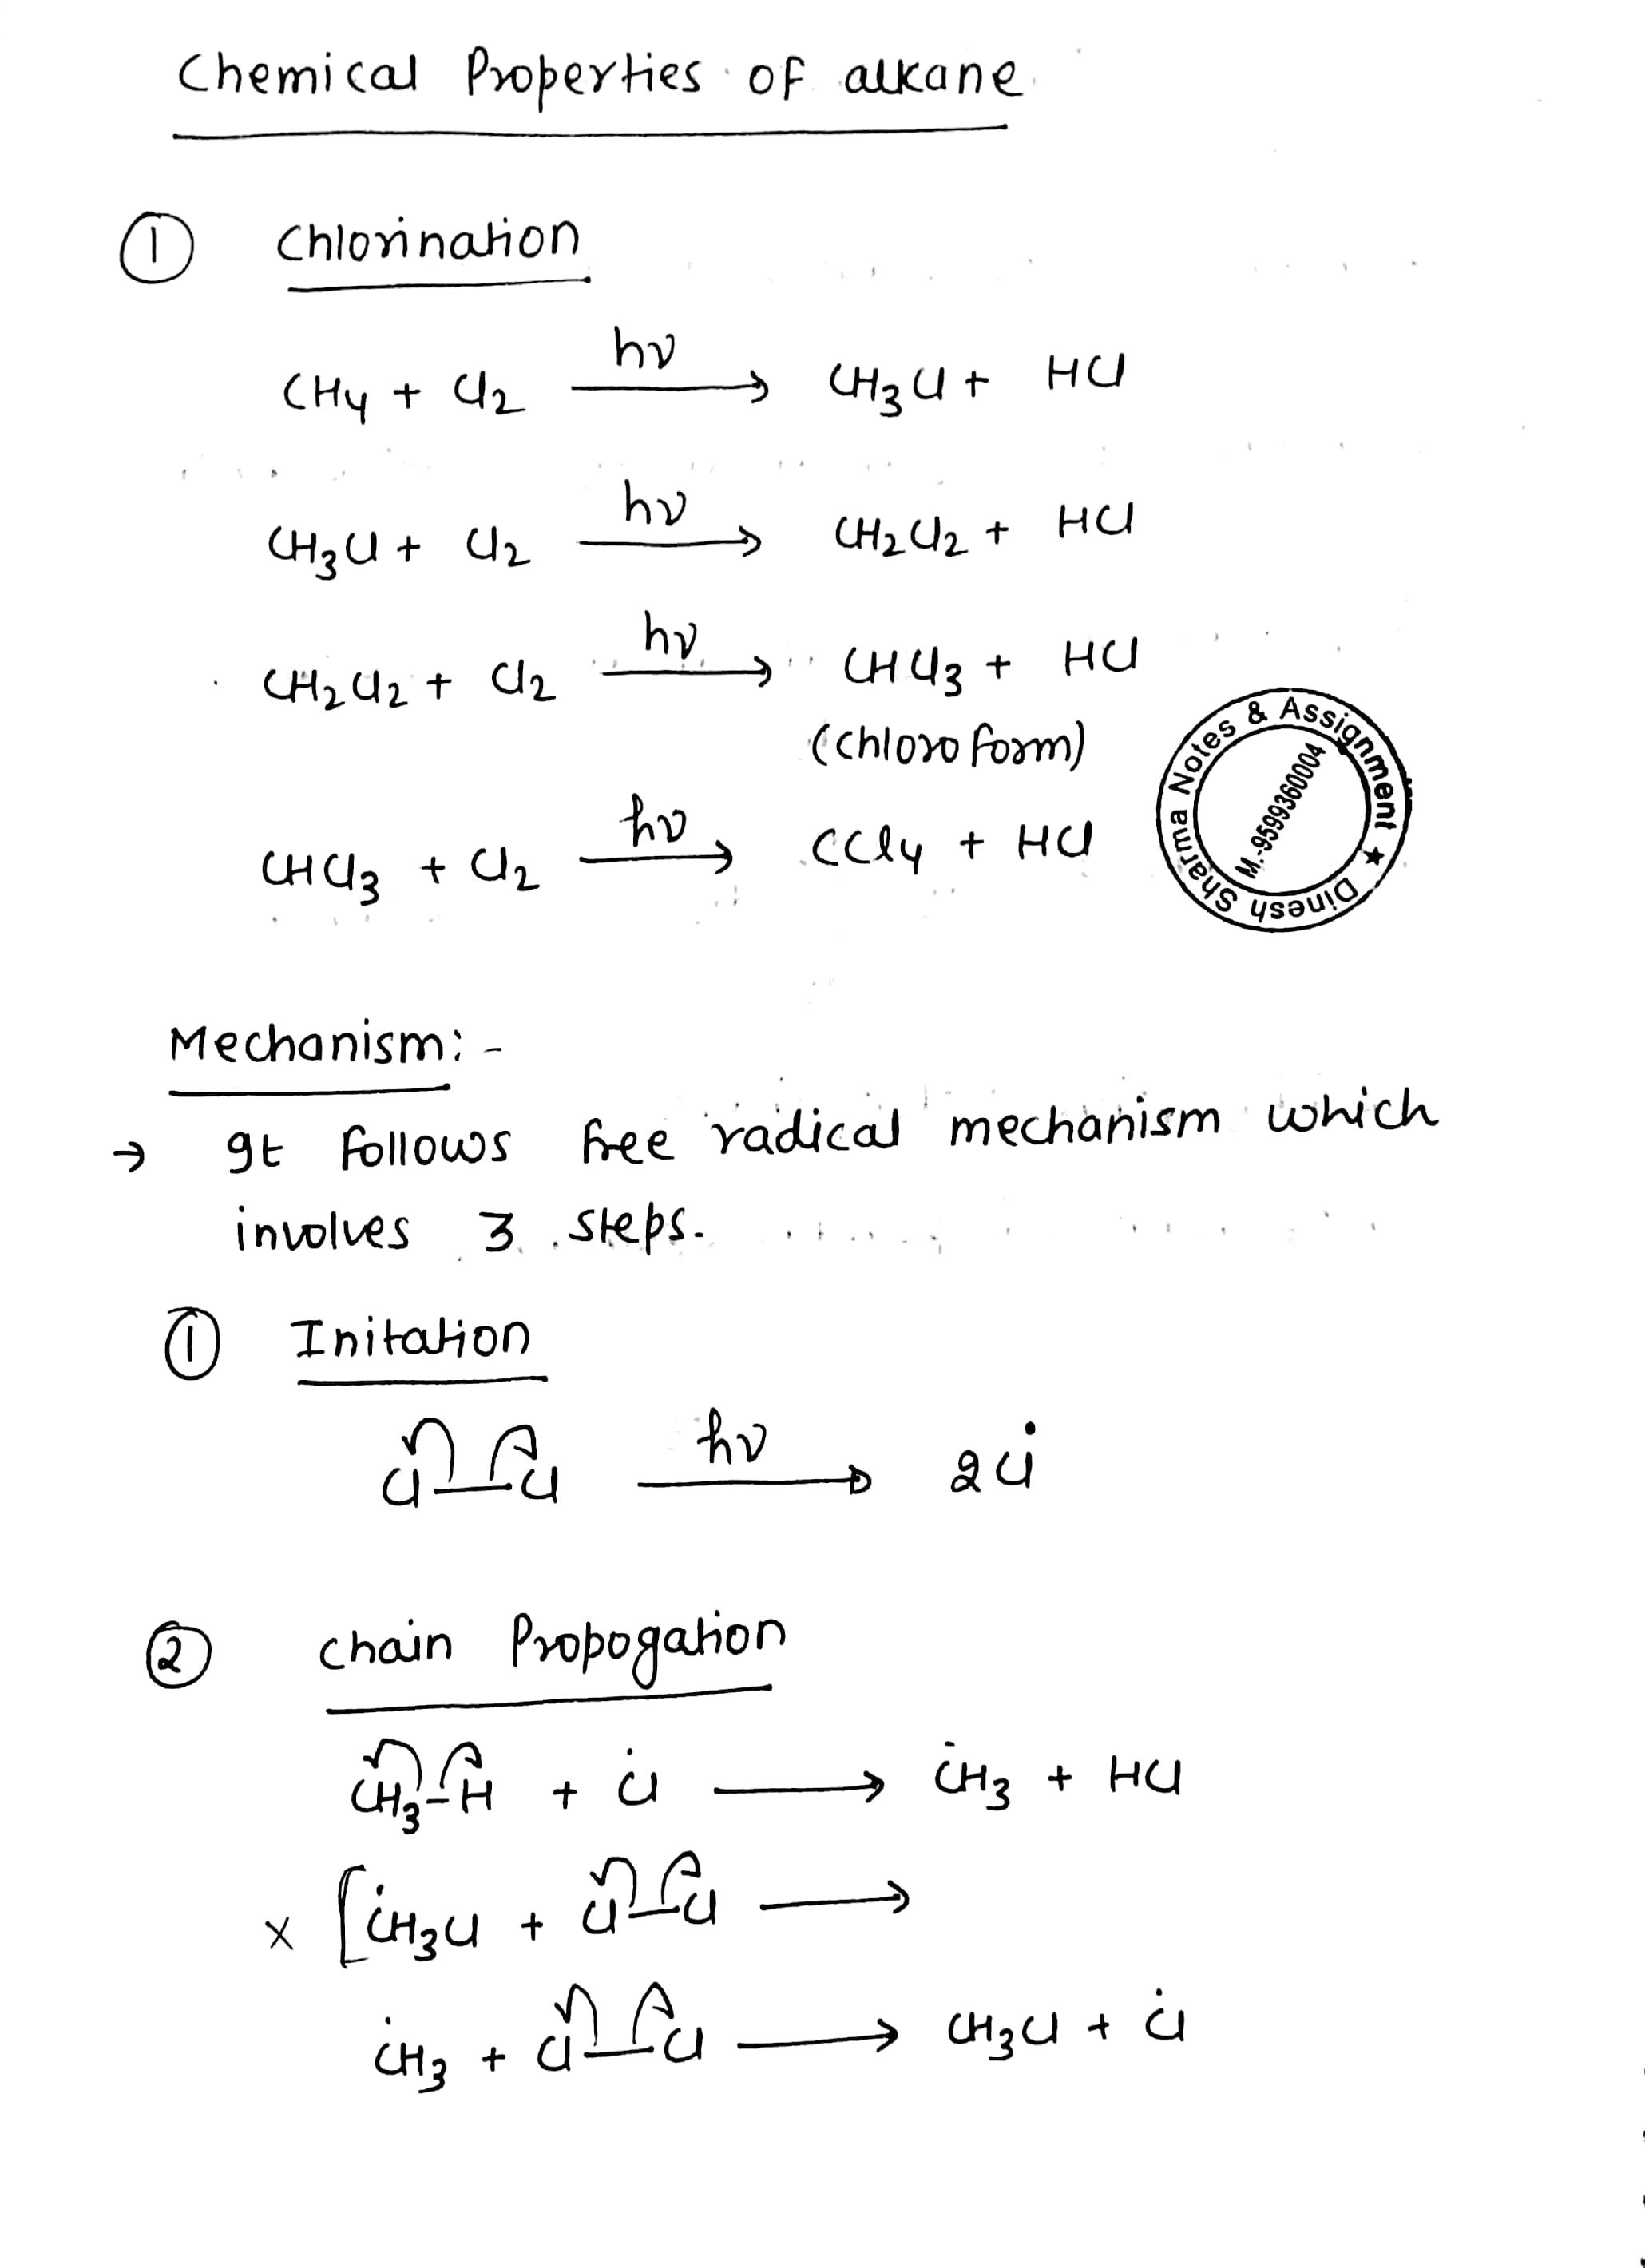 Chemical Properties of alkane
① Chlorination
CH4 + Cl2 —hν→ CH3Cl + HCl
CH3Cl + Cl2 —hν→ CH2Cl2 + HCl
CH2Cl2 + Cl2 —hν→ CHCl3 + HCl
(Chloroform)
CHCl3 + Cl2 —hν→ CCl4 + HCl
Dinesh Sharma Notes & Assignment ★
M.-9599360004
Mechanism:-
→ It follows free radical mechanism which
involves 3 steps.
① Initation
Cl—Cl —hν→ 2Cl•
② Chain Propogation
CH3–H + Cl• → •CH3 + HCl
× [•CH3Cl + Cl—Cl →
•CH3 + Cl—Cl → CH3Cl + Cl•